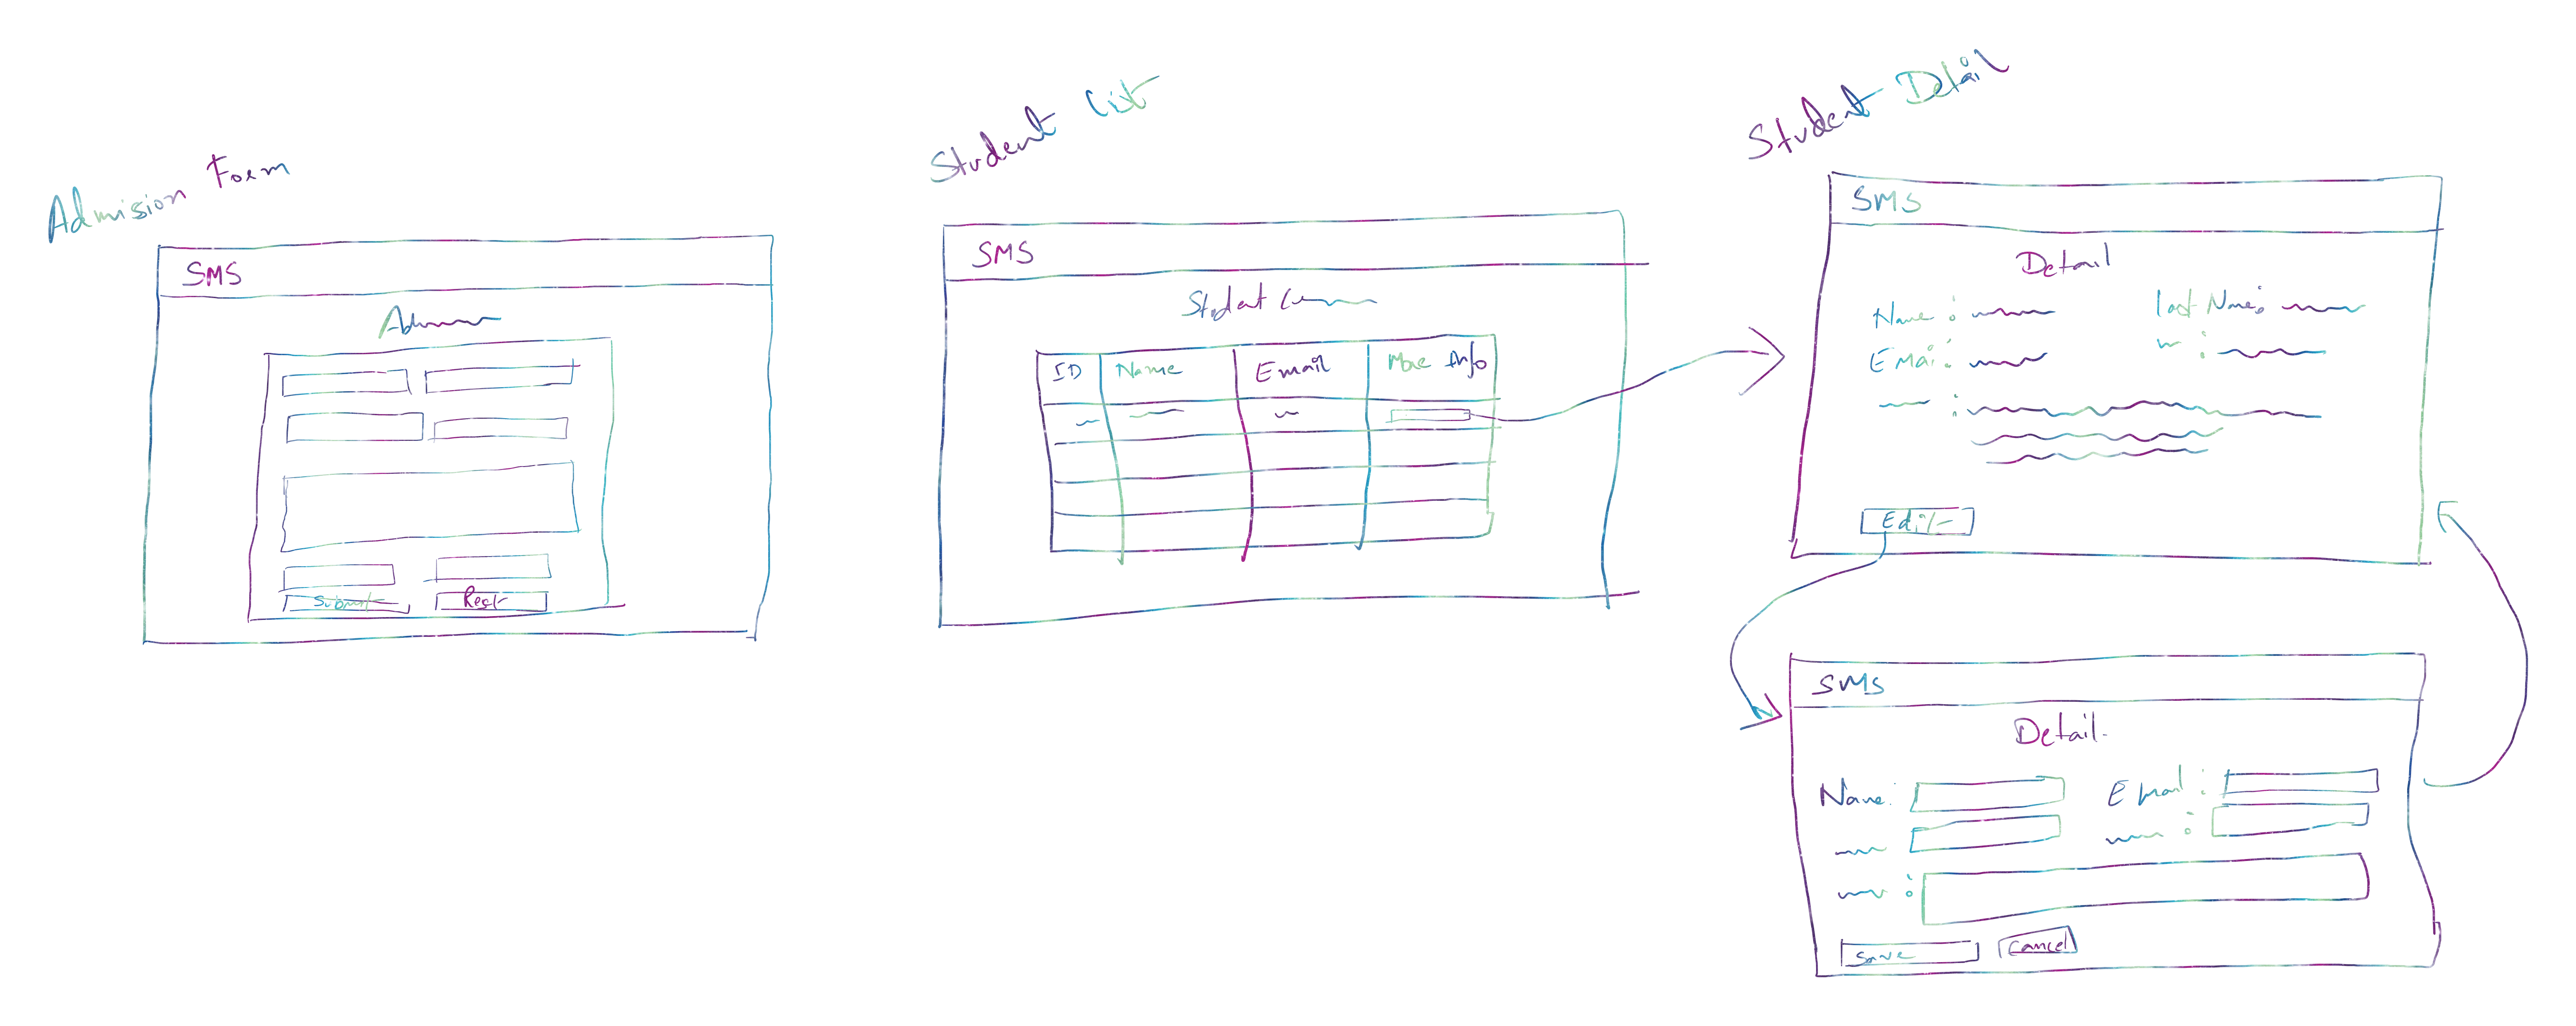 Admision Form
SMS
Submit
Reset
Student List
SMS
Student
ID Name Email More Info
Student Detail
SMS
Detail
Name : Last Name:
Email :
Edit
SMS
Detail.
Name: Email :
Save Cancel